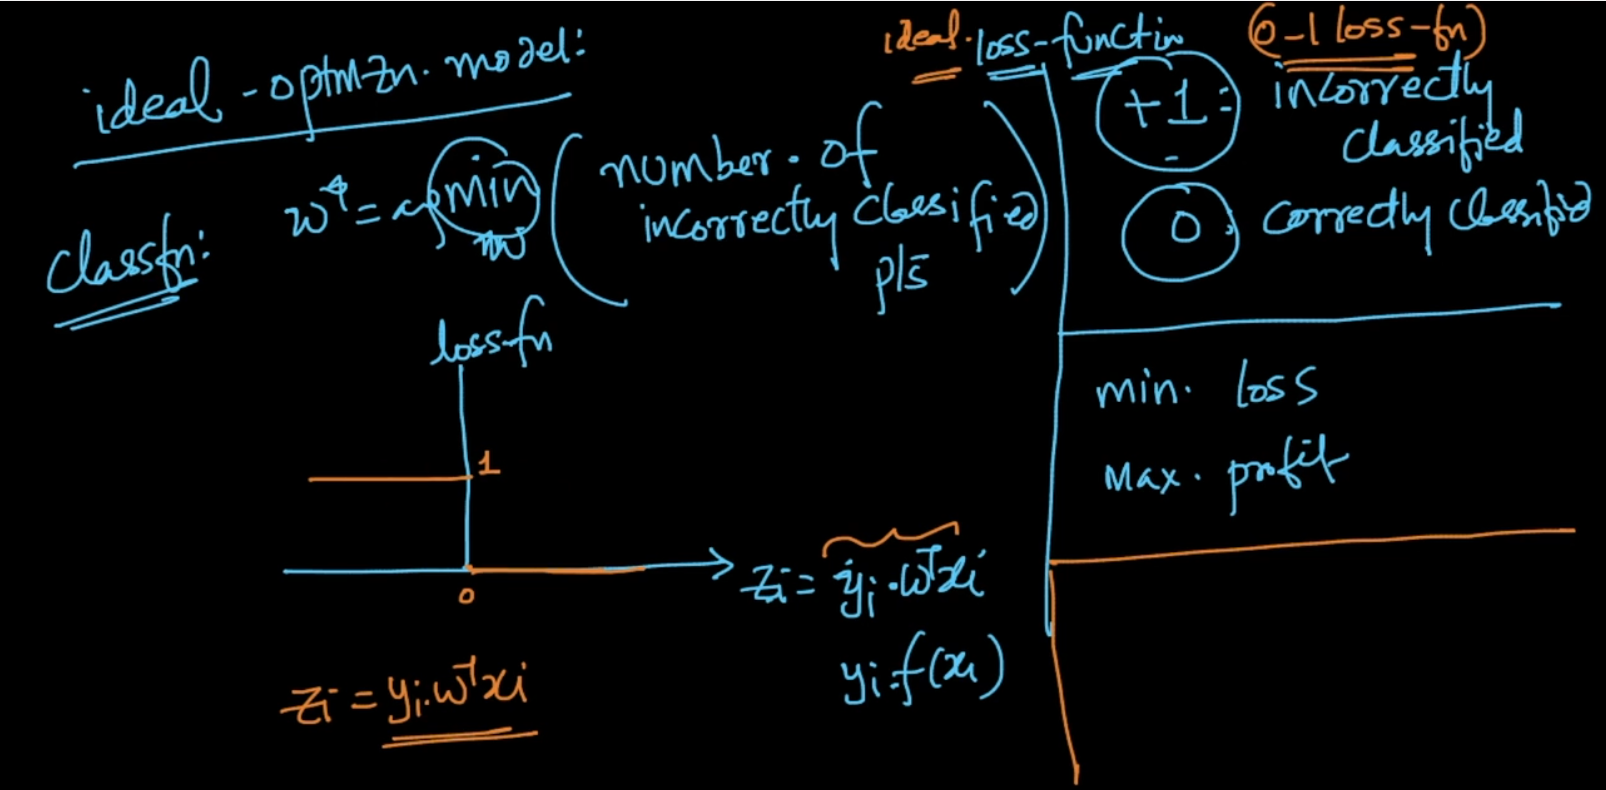 ideal-optmzn. model:
Classfn: w* = argmin w ( number. of
incorrectly classified
pts )
loss-fn
1
0
zi = yi.wᵀxi
yi.f(xi)
zi = yi.wᵀxi
ideal. loss-functin (0-1 loss-fn)
+1: incorrectly
classified
0: correctly classified
min. loss
Max. profit